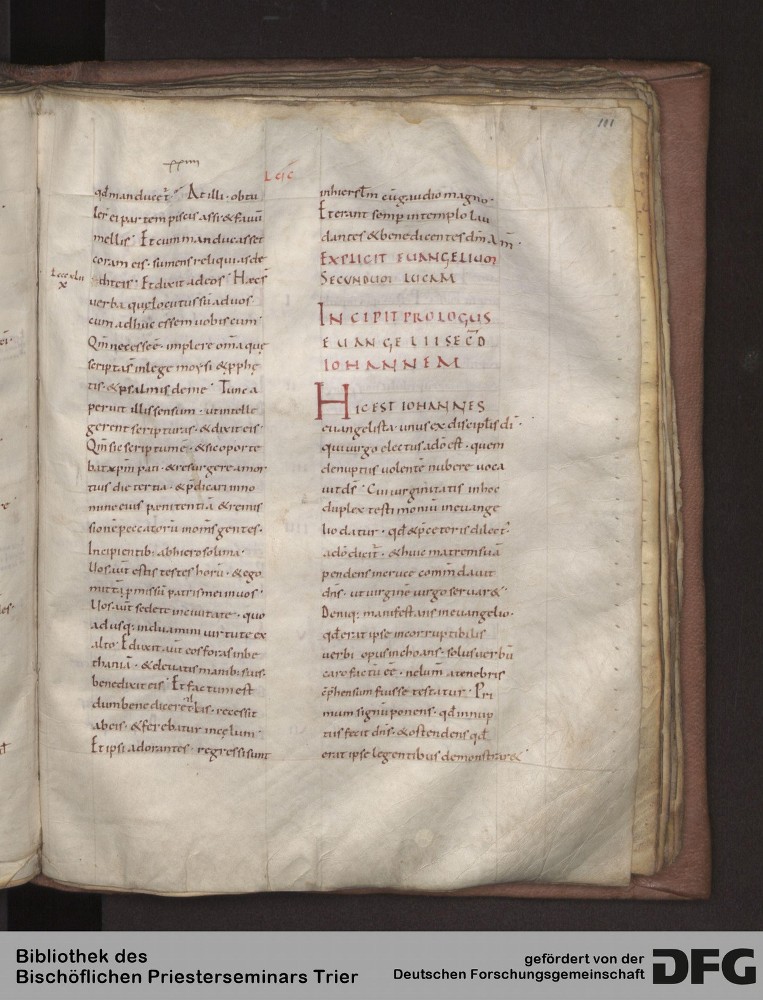 111
xxiiii
LUC
qd manducet᷑. At illi obtu
ler̄ ei partem piscis assi & fauū
mellis. Et cum manducasset
coram eis. sumens reliquias de
dit eis. Et dixit ad eos. Haec s̄
uerba quę locutus sū ad uos
cum adhuc essem uobiscum.
Qm̄ necesse ē. implere om̄a quę
scripta s̄ in lege moysi & pphę
tis. & psalmis de me. Tunc a
peruit illis sensum. ut intelle
gerent scripturas. & dixit eis.
Qm̄ sic scriptum ē. & sic oporte
bat xp̄m pati. & resurgere a mor
tuis die tertia. & p̄dicari in no
mine eius penitentiā & remis
sionē peccatorū in om̄s gentes.
Incipientib; ab hierosolima.
Uos aut̄ estis testes horū. & ego
mittā p̄missū patris mei in uos.
Uos aut̄ sedete in ciuitate. quo
ad usq; induamini uirtute ex
alto. Eduxit aut̄ eos foras in be
thaniā. & eleuatis manib; suis.
benedixit eis. Et factum est
dum benediceret illis. recessit
ab eis. & ferebatur in cęlum.
Et ipsi adorantes. regressi sunt
in hierlm̄ cū gaudio magno.
Et erant semp in templo lau
dantes & benedicentes dm̄ am̄.
EXPLICIT EUANGELIUM
SECUNDUM LUCAM
INCIPIT PROLOGUS
EUANGELII SECD
IOHANNEM
HIC EST IOHANNES
euangelista. unus ex discipłis di.
qui uirgo electus a dō est. quem
de nuptiis uolentē nubere uoca
uit ds̄. Cui uirginitatis in hoc
duplex testimoniū in euange
lio datur. qd & p̄ ceteris dilect᷑
a dō dicit᷑. & huic matrem suā
pendens in cruce commdauit
dn̄s. ut uirginē uirgo seruar&.
Deniq; manifestans in euangelio.
qd erat ipse incorruptibilis
uerbi opus inchoans. solus uerbū
caro factū eē. nec lum̄ a tenebris
cp̄hensum fuisse testatur. Pri
mum signū ponens. qd in nup
tiis fecit dn̄s. & ostendens qd
erat ipse legentibus demonstrar&
Bibliothek des
Bischöflichen Priesterseminars Trier
gefördert von der
Deutschen Forschungsgemeinschaft
DFG